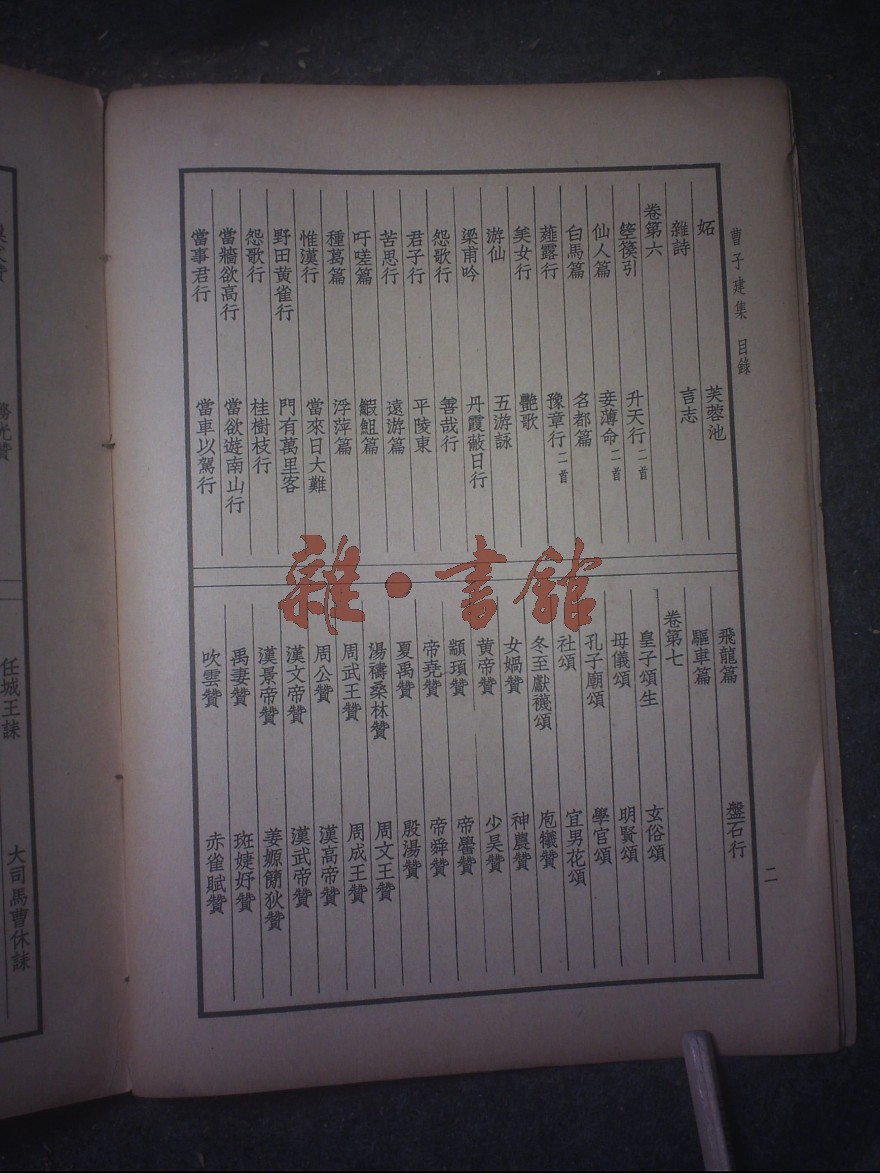 曹子建集 目錄
妬 芙蓉池
雜詩 言志
卷第六
箜篌引 升天行二首
仙人篇 妾薄命二首
白馬篇 名都篇
薤露行 豫章行二首
美女行 艷歌
游仙 五游詠
梁甫吟 丹霞蔽日行
怨歌行 善哉行
君子行 平陵東
苦思行 遠游篇
吁嗟篇 鰕䱇篇
種葛篇 浮萍篇
惟漢行 當來日大難
野田黃雀行 門有萬里客
怨歌行 桂樹枝行
當牆欲高行 當欲遊南山行
當事君行 當車以駕行
飛龍篇 盤石行
驅車篇
卷第七
皇子頌生 玄俗頌
母儀頌 明賢頌
孔子廟頌 學官頌
社頌 宜男花頌
冬至獻襪頌 庖犧贊
女媧贊 神農贊
黃帝贊 少昊贊
顓頊贊 帝嚳贊
帝堯贊 帝舜贊
夏禹贊 殷湯贊
湯禱桑林贊 周文王贊
周武王贊 周成王贊
周公贊 漢高帝贊
漢文帝贊 漢武帝贊
漢景帝贊 姜嫄簡狄贊
禹妻贊 班婕妤贊
吹雲贊 赤雀賦贊
二
雜·書館
務光贊
任城王誄 大司馬曹休誄